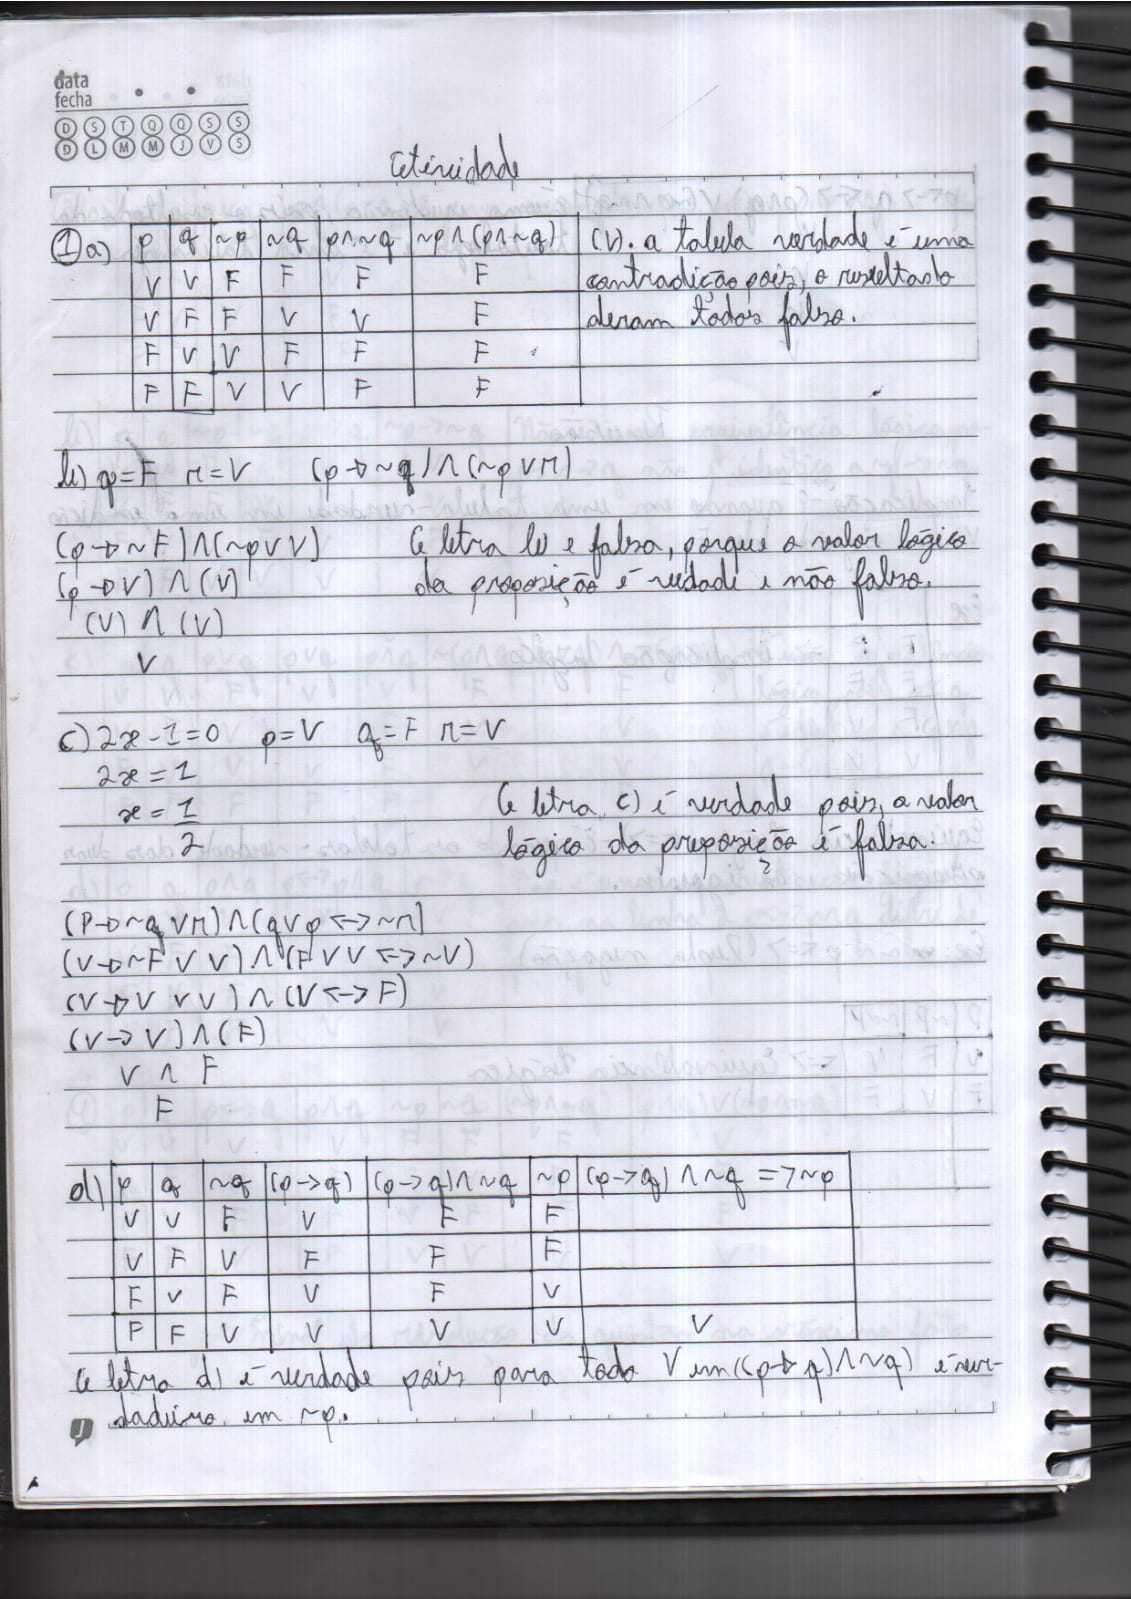 data
fecha
D S T Q Q S S
D L M M J V S
Atividade
1 a) p q ~p ~q p∧~q ~p∧(p∧~q) (V). a tabula verdade é uma
V V F F F F contradição pois, o resultado
V F F V V F deram todos falso.
F V V F F F
F F V V F F
b) q=F r=V (p→~q)∧(~p∨r)
(p→~F)∧(~p∨V) A letra b) e falsa, porque o valor lógico
(p→V)∧(V) da proposição é verdade e não falso.
(V)∧(V)
V
c) 2x-1=0 p=V q=F r=V
2x=1
x=1/2 A letra c) é verdade pois, o valor
lógico da proposição é falsa.
(P→~q∨r)∧(q∨p<->~r)
(V→~F∨V)∧(F∨V<->~V)
(V→V∨V)∧(V<->F)
(V->V)∧(F)
V∧F
F
d) p q ~q (p->q) (p->q)∧~q ~p (p->q)∧~q=>~p
V V F V F F
V F V F F F
F V F V F V
F F V V V V V
A letra d) é verdade pois para todo V em ((p→q)∧~q) é ver-
dadeiro em ~p.